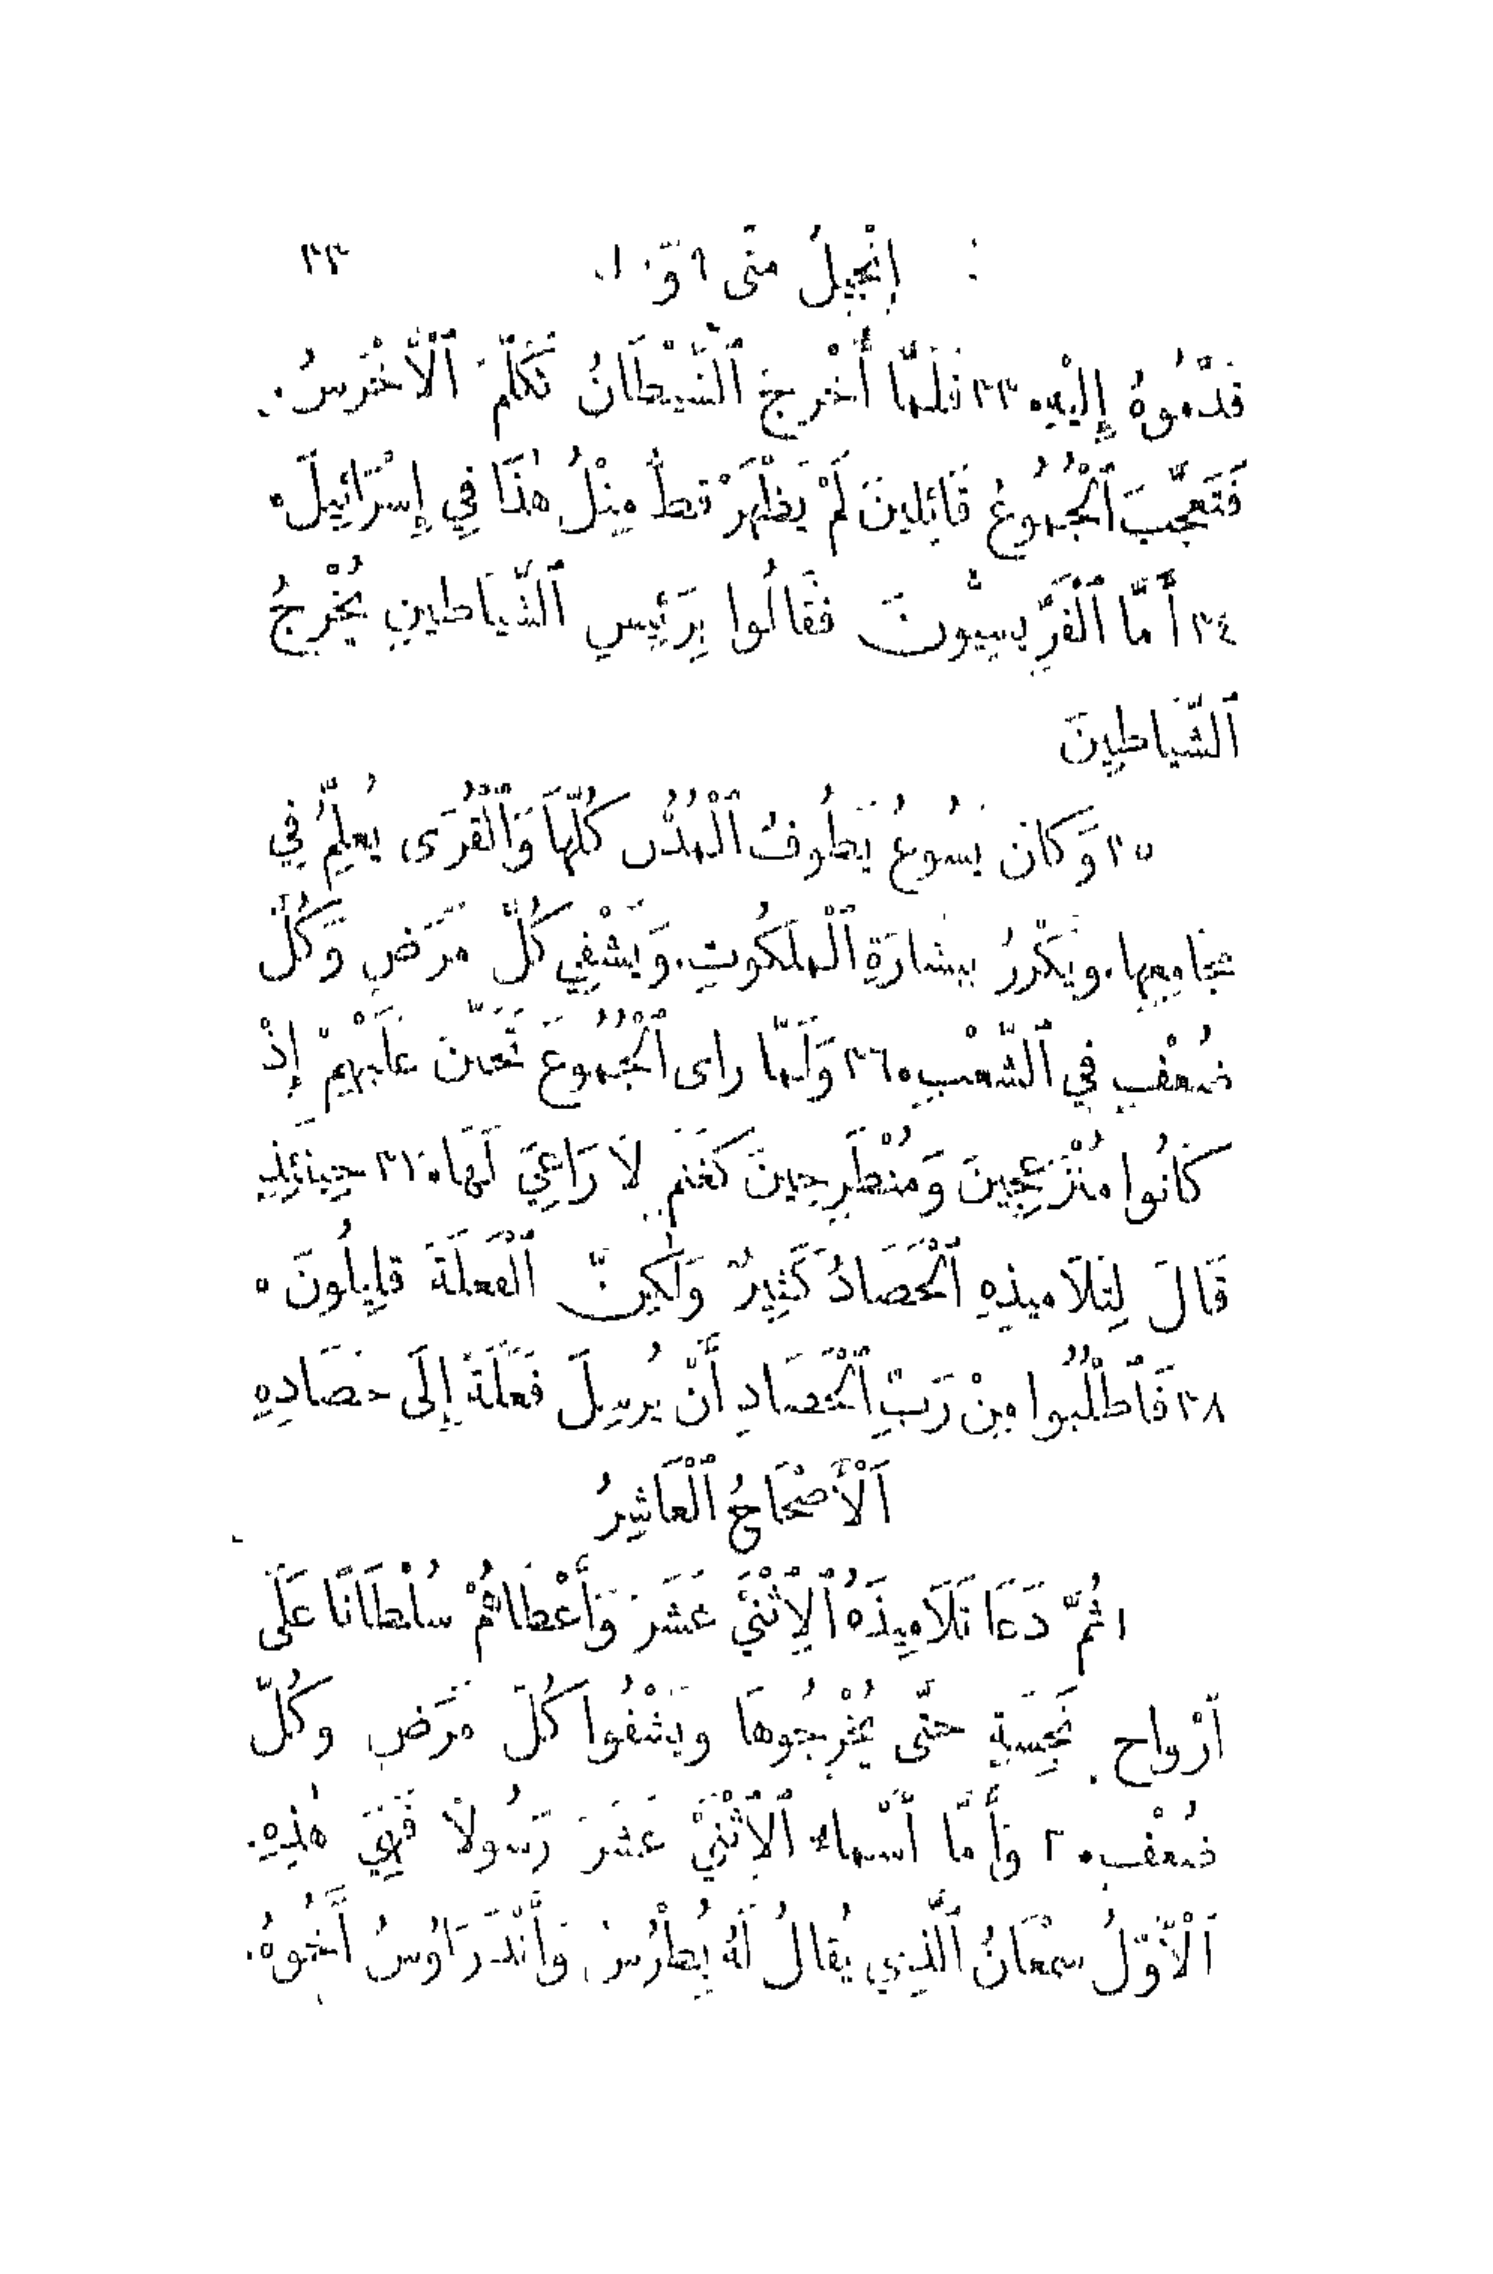 إِنْجِيلُ مَتَّى ٩ وَ ١٠ ٣٣
قَدَّمُوهُ إِلَيْهِ. ٣٣ فَلَمَّا أُخْرِجَ ٱلشَّيْطَانُ تَكَلَّمَ ٱلْأَخْرَسُ.
فَتَعَجَّبَ ٱلْجُمُوعُ قَائِلِينَ لَمْ يَظْهَرْ قَطُّ مِثْلُ هٰذَا فِي إِسْرَائِيلَ.
٣٤ أَمَّا ٱلْفَرِّيسِيُّونَ فَقَالُوا بِرَئِيسِ ٱلشَّيَاطِينِ يُخْرِجُ
ٱلشَّيَاطِينَ
٣٥ وَكَانَ يَسُوعُ يَطُوفُ ٱلْمُدُنَ كُلَّهَا وَٱلْقُرَى يُعَلِّمُ فِي
مَجَامِعِهَا. وَيَكْرِزُ بِبِشَارَةِ ٱلْمَلَكُوتِ. وَيَشْفِي كُلَّ مَرَضٍ وَكُلَّ
ضُعْفٍ فِي ٱلشَّعْبِ. ٣٦ وَلَمَّا رَأَى ٱلْجُمُوعَ تَحَنَّنَ عَلَيْهِمْ إِذْ
كَانُوا مُنْزَعِجِينَ وَمُنْطَرِحِينَ كَغَنَمٍ لَا رَاعِيَ لَهَا. ٣٧ حِينَئِذٍ
قَالَ لِتَلَامِيذِهِ ٱلْحَصَادُ كَثِيرٌ وَلٰكِنَّ ٱلْفَعَلَةَ قَلِيلُونَ.
٣٨ فَٱطْلُبُوا مِنْ رَبِّ ٱلْحَصَادِ أَنْ يُرْسِلَ فَعَلَةً إِلَى حَصَادِهِ
اَلْأَصْحَاحُ ٱلْعَاشِرُ
١ ثُمَّ دَعَا تَلَامِيذَهُ ٱلِٱثْنَيْ عَشَرَ وَأَعْطَاهُمْ سُلْطَانًا عَلَى
أَرْوَاحٍ نَجِسَةٍ حَتَّى يُخْرِجُوهَا وَيَشْفُوا كُلَّ مَرَضٍ وَكُلَّ
ضُعْفٍ. ٢ وَأَمَّا أَسْمَاءُ ٱلِٱثْنَيْ عَشَرَ رَسُولًا فَهِيَ هٰذِهِ.
اَلْأَوَّلُ سِمْعَانُ ٱلَّذِي يُقَالُ لَهُ بُطْرُسُ وَأَنْدَرَاوُسُ أَخُوهُ.